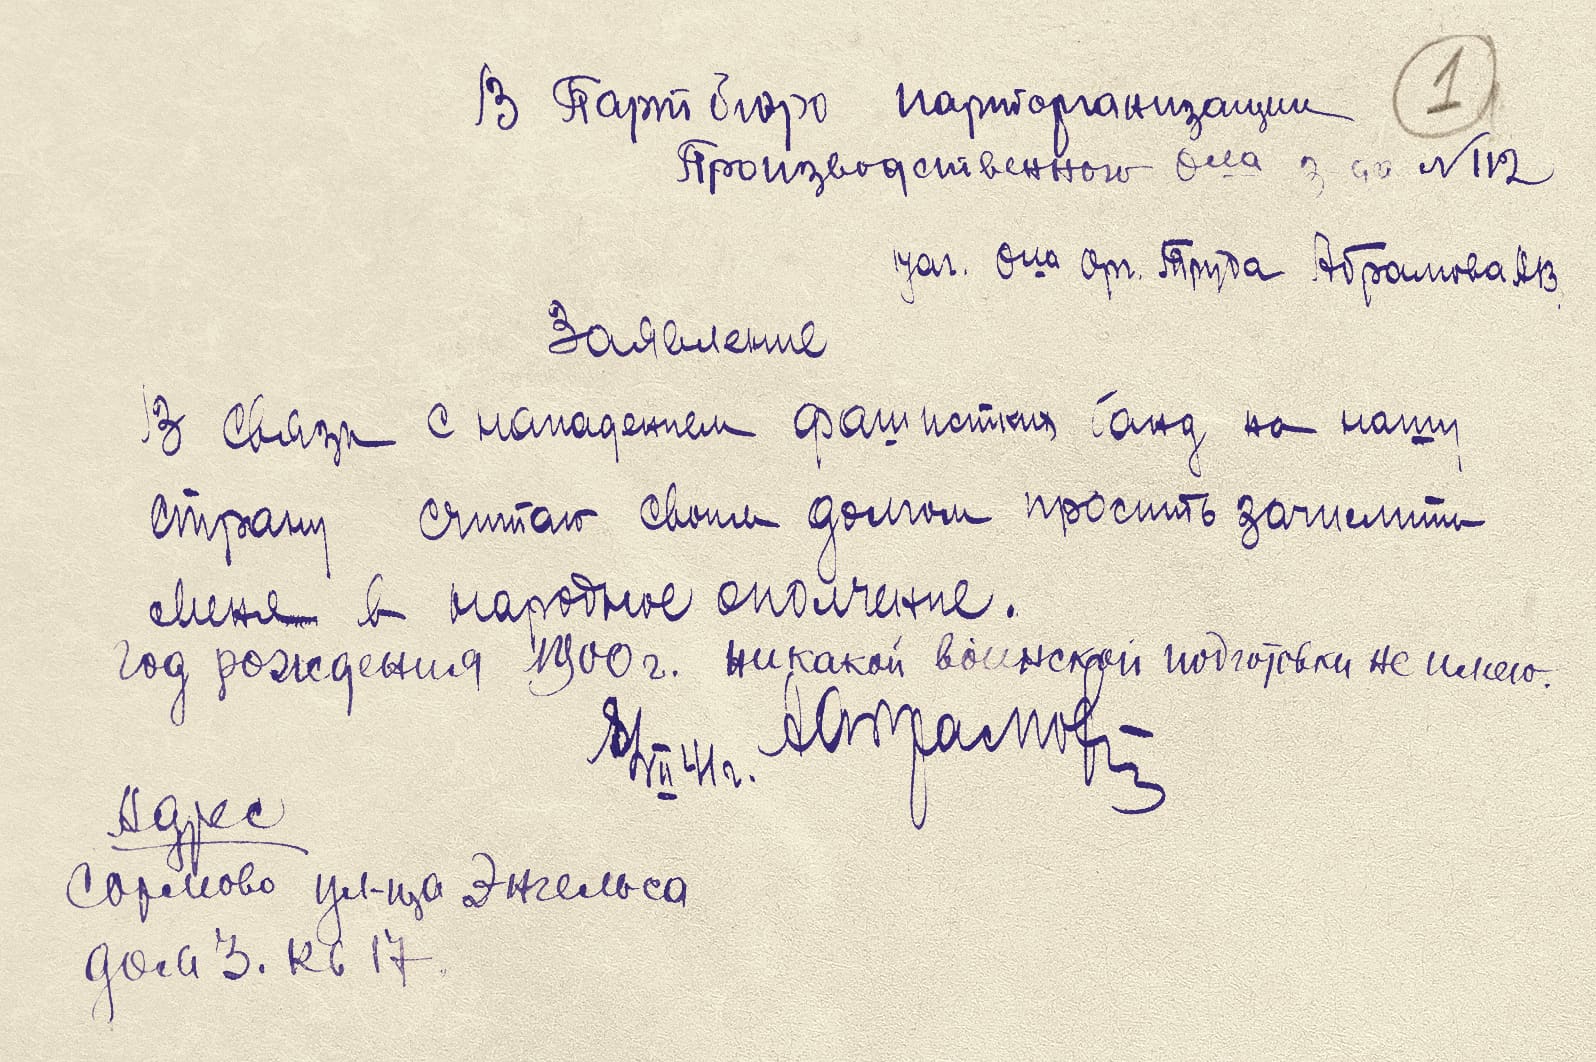 1
В Партбюро парторганизации
Производственного от-ла з-да №112
нач. от-ла орг. Труда Абрамова АВ.
Заявление
В связи с нападением фашистких банд на нашу
страну считаю своим долгом просить зачислить
меня в народное ополчение.
год рождения 1900 г. никакой воинской подготовки не имею.
VII 41 г. Абрамов
Адрес
Сормово ул-ца Энгельса
дом 3. кв 17.